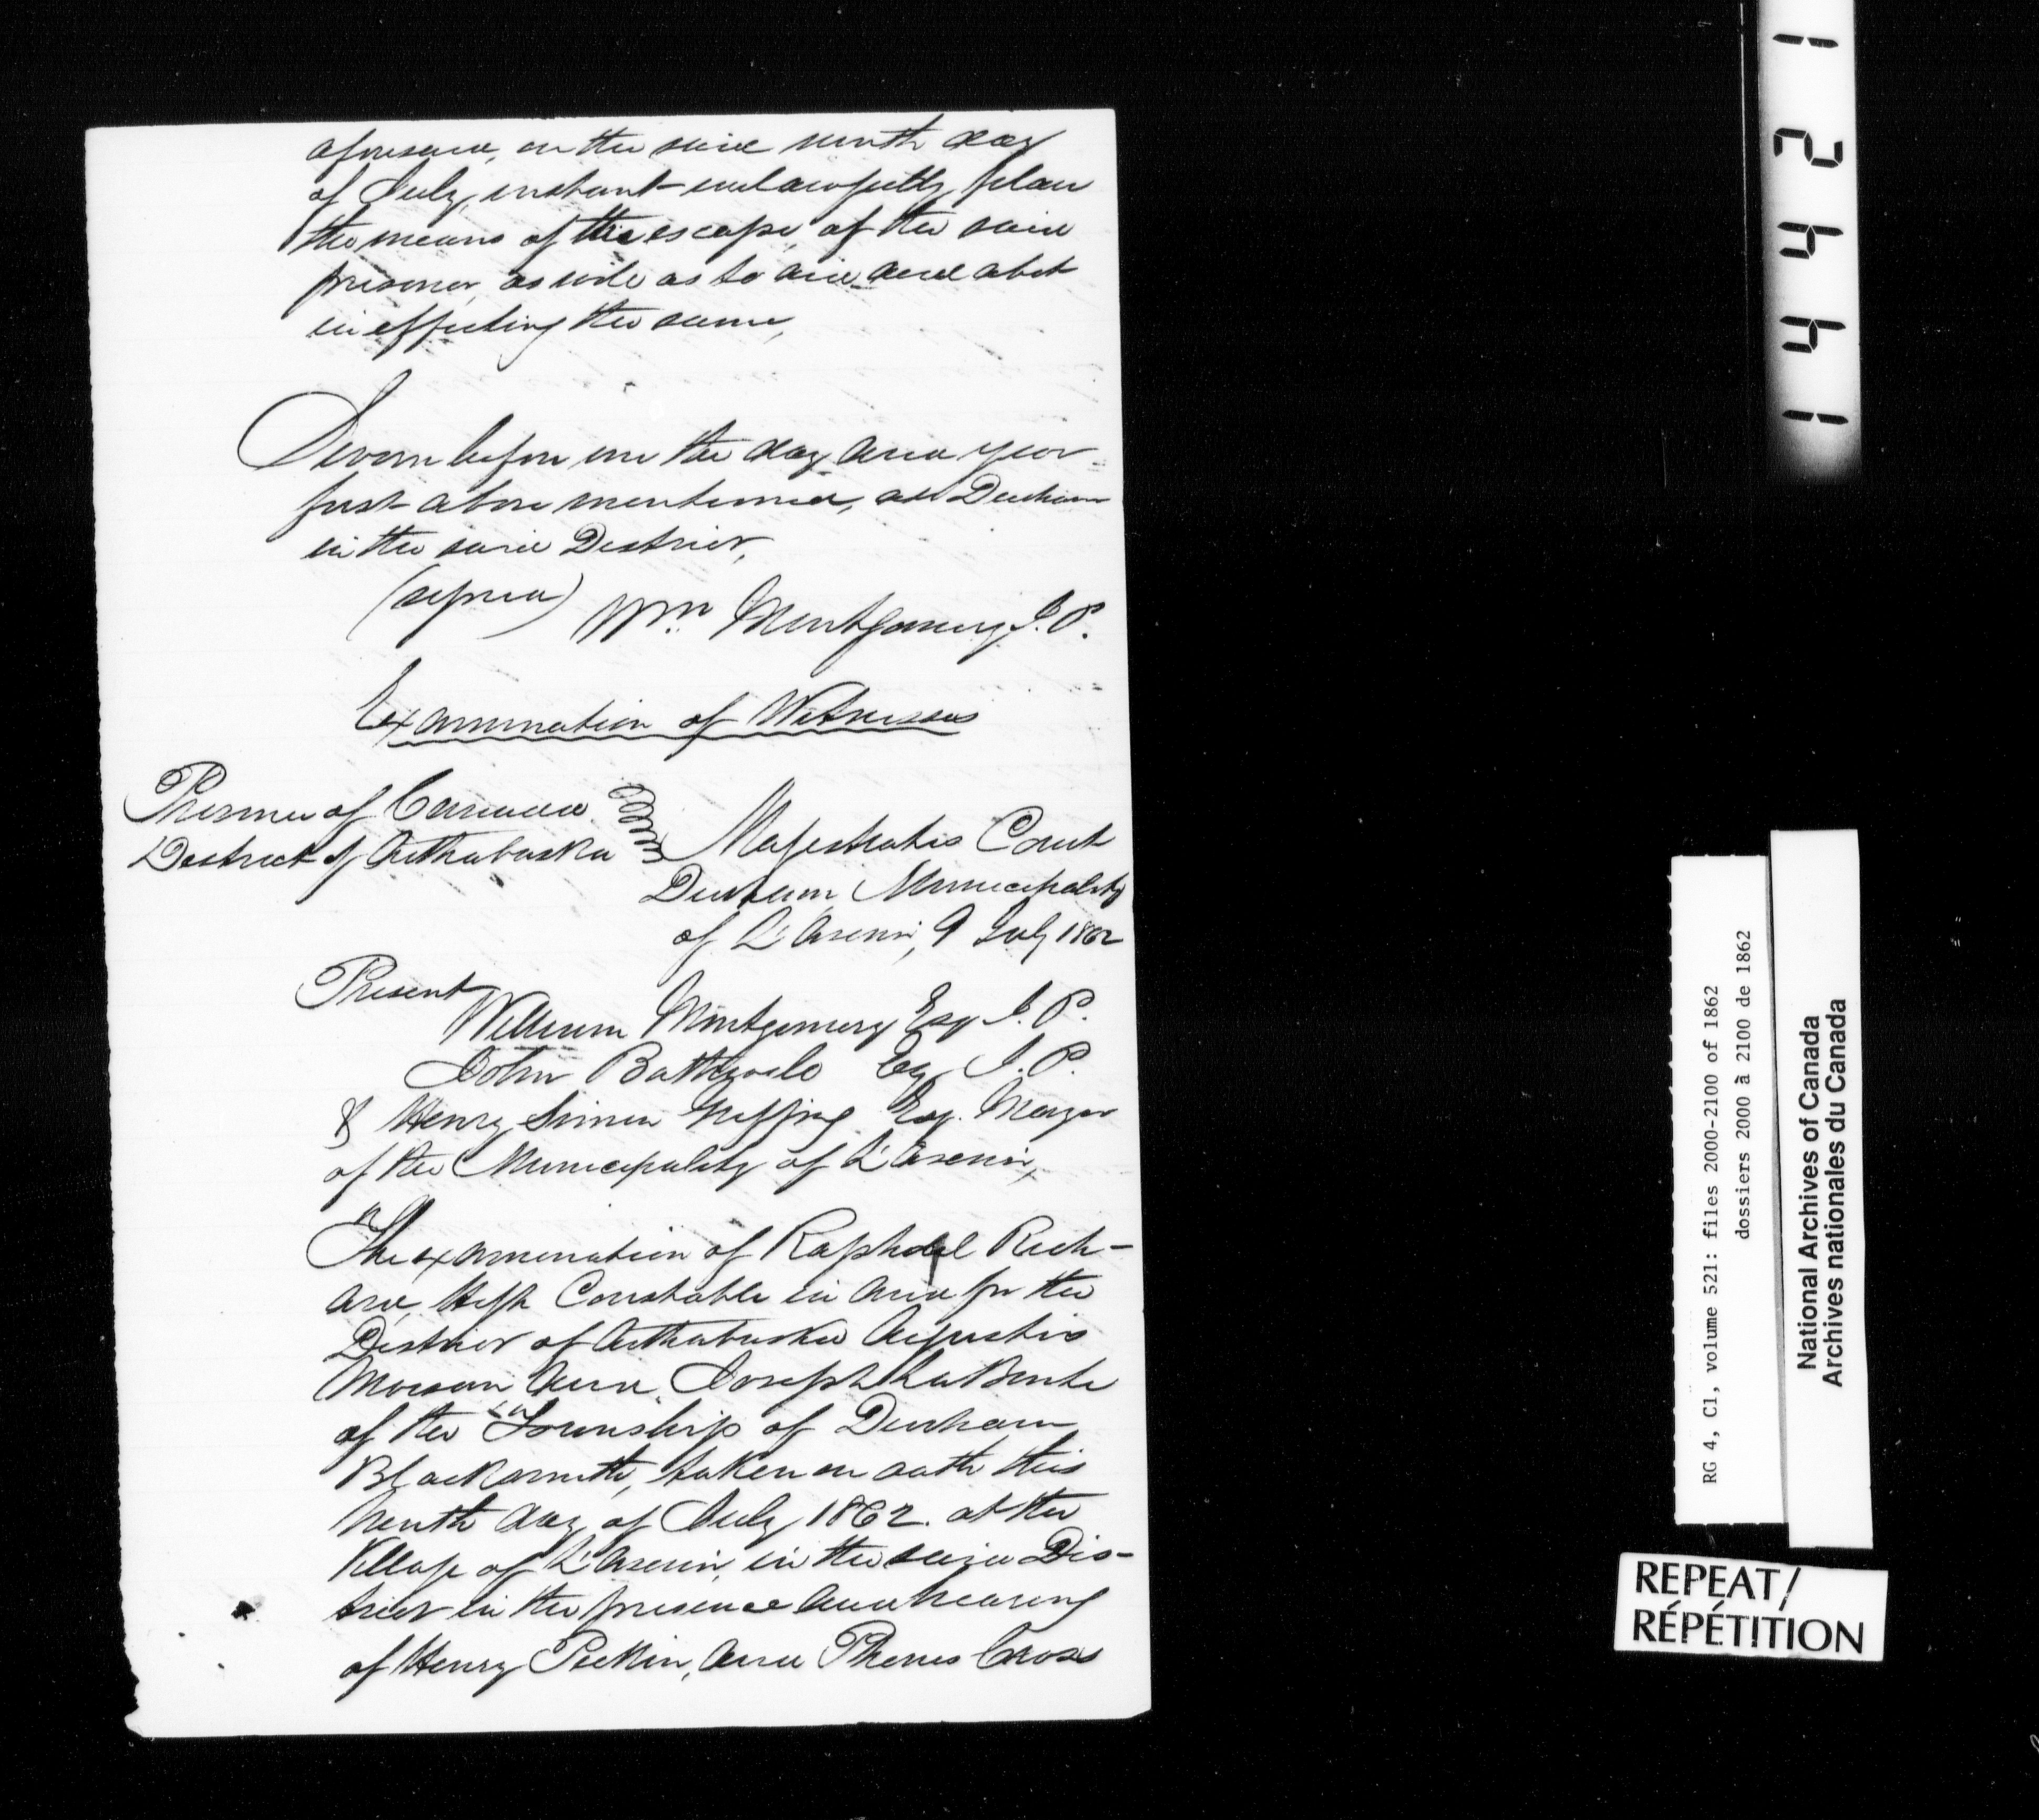 aforesaid, on the said ninth day
of July, instant unlawfully plan
the means of the escape, of the said
prisoner, as well as to aid and abet
in effecting the same,
Sworn before me the day and year
first above mentioned, at Durham
in the said District,
(signed) Wm. Montgomery J.P.
Examination of Witnesses
Province of Canada
District of Arthabaska
Magistrates Court
Durham, Municipality
of L'Avenir, 9 July 1862
Present
William Montgomery Esq J.P.
John Esq J.P.
& Henry Simon Esq. Mayor
of the Municipality of L'Avenir,
The examination of Raphael Rich-
ard, High Constable in and for the
District of Arthabaska
and Joseph
of the Township of Durham
Blacksmith, taken on oath this
Ninth day of July 1862. at the
Village of L'Avenir, in the said Dis-
trict in the presence and hearing
of Henry and Cross
12441
RG 4, C1, volume 521: files 2000-2100 of 1862
dossiers 2000 à 2100 de 1862
National Archives of Canada
Archives nationales du Canada
REPEAT/
RÉPÉTITION